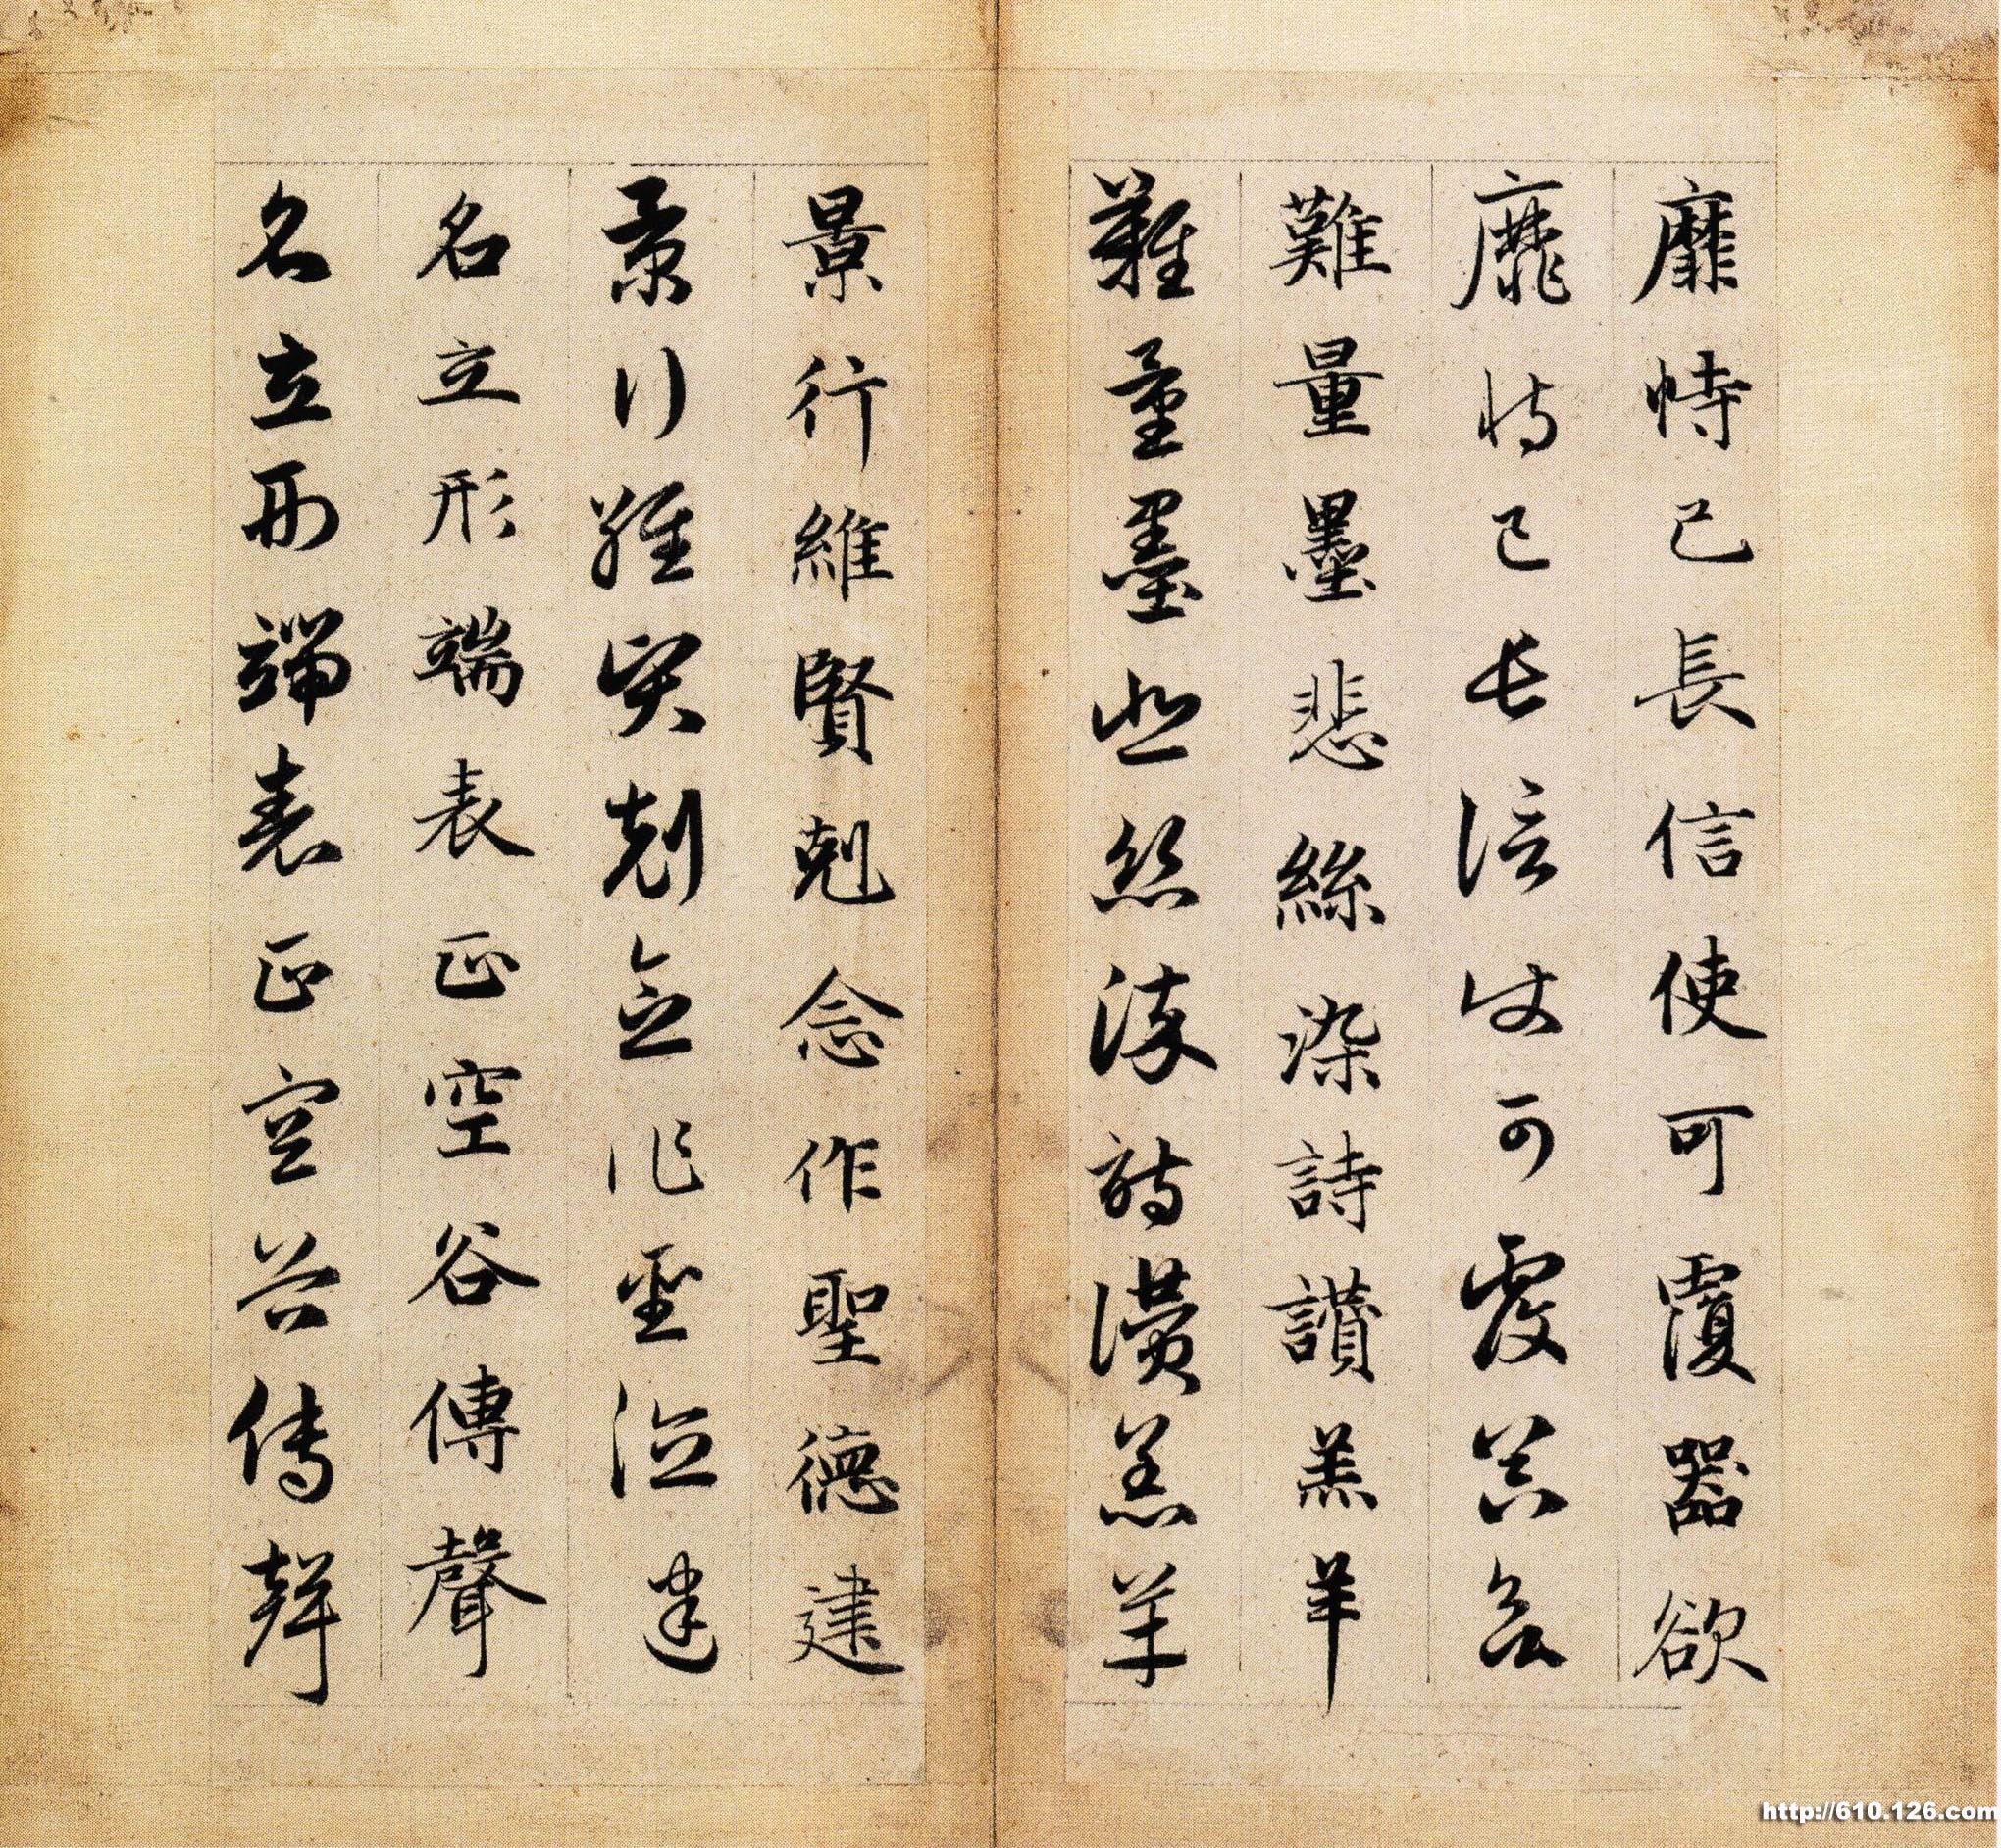 靡恃己長信使可覆器欲
靡恃己長信使可覆器欲
難量墨悲絲染詩讚羔羊
難量墨悲絲染詩讚羔羊
景行維賢剋念作聖德建
景行維賢剋念作聖德建
名立形端表正空谷傳聲
名立形端表正空谷傳聲
http://610.126.com